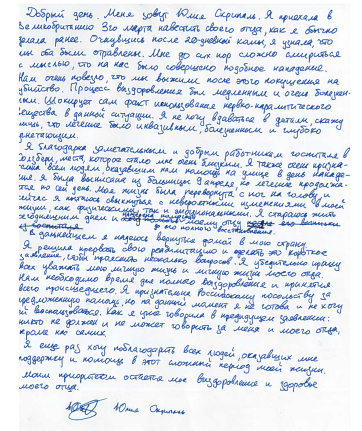 Добрый день. Меня зовут Юлия Скрипаль. Я приехала в
Великобританию 3го марта навестить своего отца, как я обычно
делала ранее. Очнувшись после 20-дневной комы, я узнала, что
мы оба были отравлены. Мне до сих пор сложно смириться
с мыслью, что на нас было совершено подобное нападение.
Нам очень повезло, что мы выжили после этого покушения на
убийство. Процесс выздоровления был медленным и очень болезнен-
ным. Шокирует сам факт использования нервно-паралитического
вещества в данной ситуации. Я не хочу вдаваться в детали, скажу
лишь, что лечение было инвазивным, болезненным и глубоко
угнетающим.
Я благодарна замечательным и добрым работникам госпиталя в
Солсбери, места, которое стало мне очень близким. Я также очень призна-
тельна всем людям, оказавшим нам помощь на улице в день нападе-
ния. Я была выписана из больницы 9 апреля, но лечение продолжа-
ется по сей день. Моя жизнь была перевернута с ног на голову и
сейчас я пытаюсь свыкнуться с невероятными изменениями в моей
жизни как физическими, так и эмоциональными. Я стараюсь жить
сегодняшним днем и
моего отца
до его полного выздоровления.
В дальнейшем я надеюсь вернуться домой в мою страну.
Я решила прервать свою реабилитацию и сделать это короткое
заявление, чтобы прояснить несколько вопросов. Я убедительно прошу
всех уважать мою личную жизнь и личную жизнь моего отца.
Нам необходимо время для полного выздоровления и принятия
всего произошедшего. Я признательна Российскому посольству за
предложенную помощь, но на данный момент я не готова и не хочу
ей воспользоваться. Как я уже говорила в предыдущем заявлении:
никто не должен и не может говорить за меня и моего отца,
кроме нас самих.
Я еще раз хочу поблагодарить всех людей, оказавших мне
поддержку и помощь в этот сложный период моей жизни.
Моим приоритетом остается мое выздоровление и здоровье
моего отца.
Юлия Скрипаль